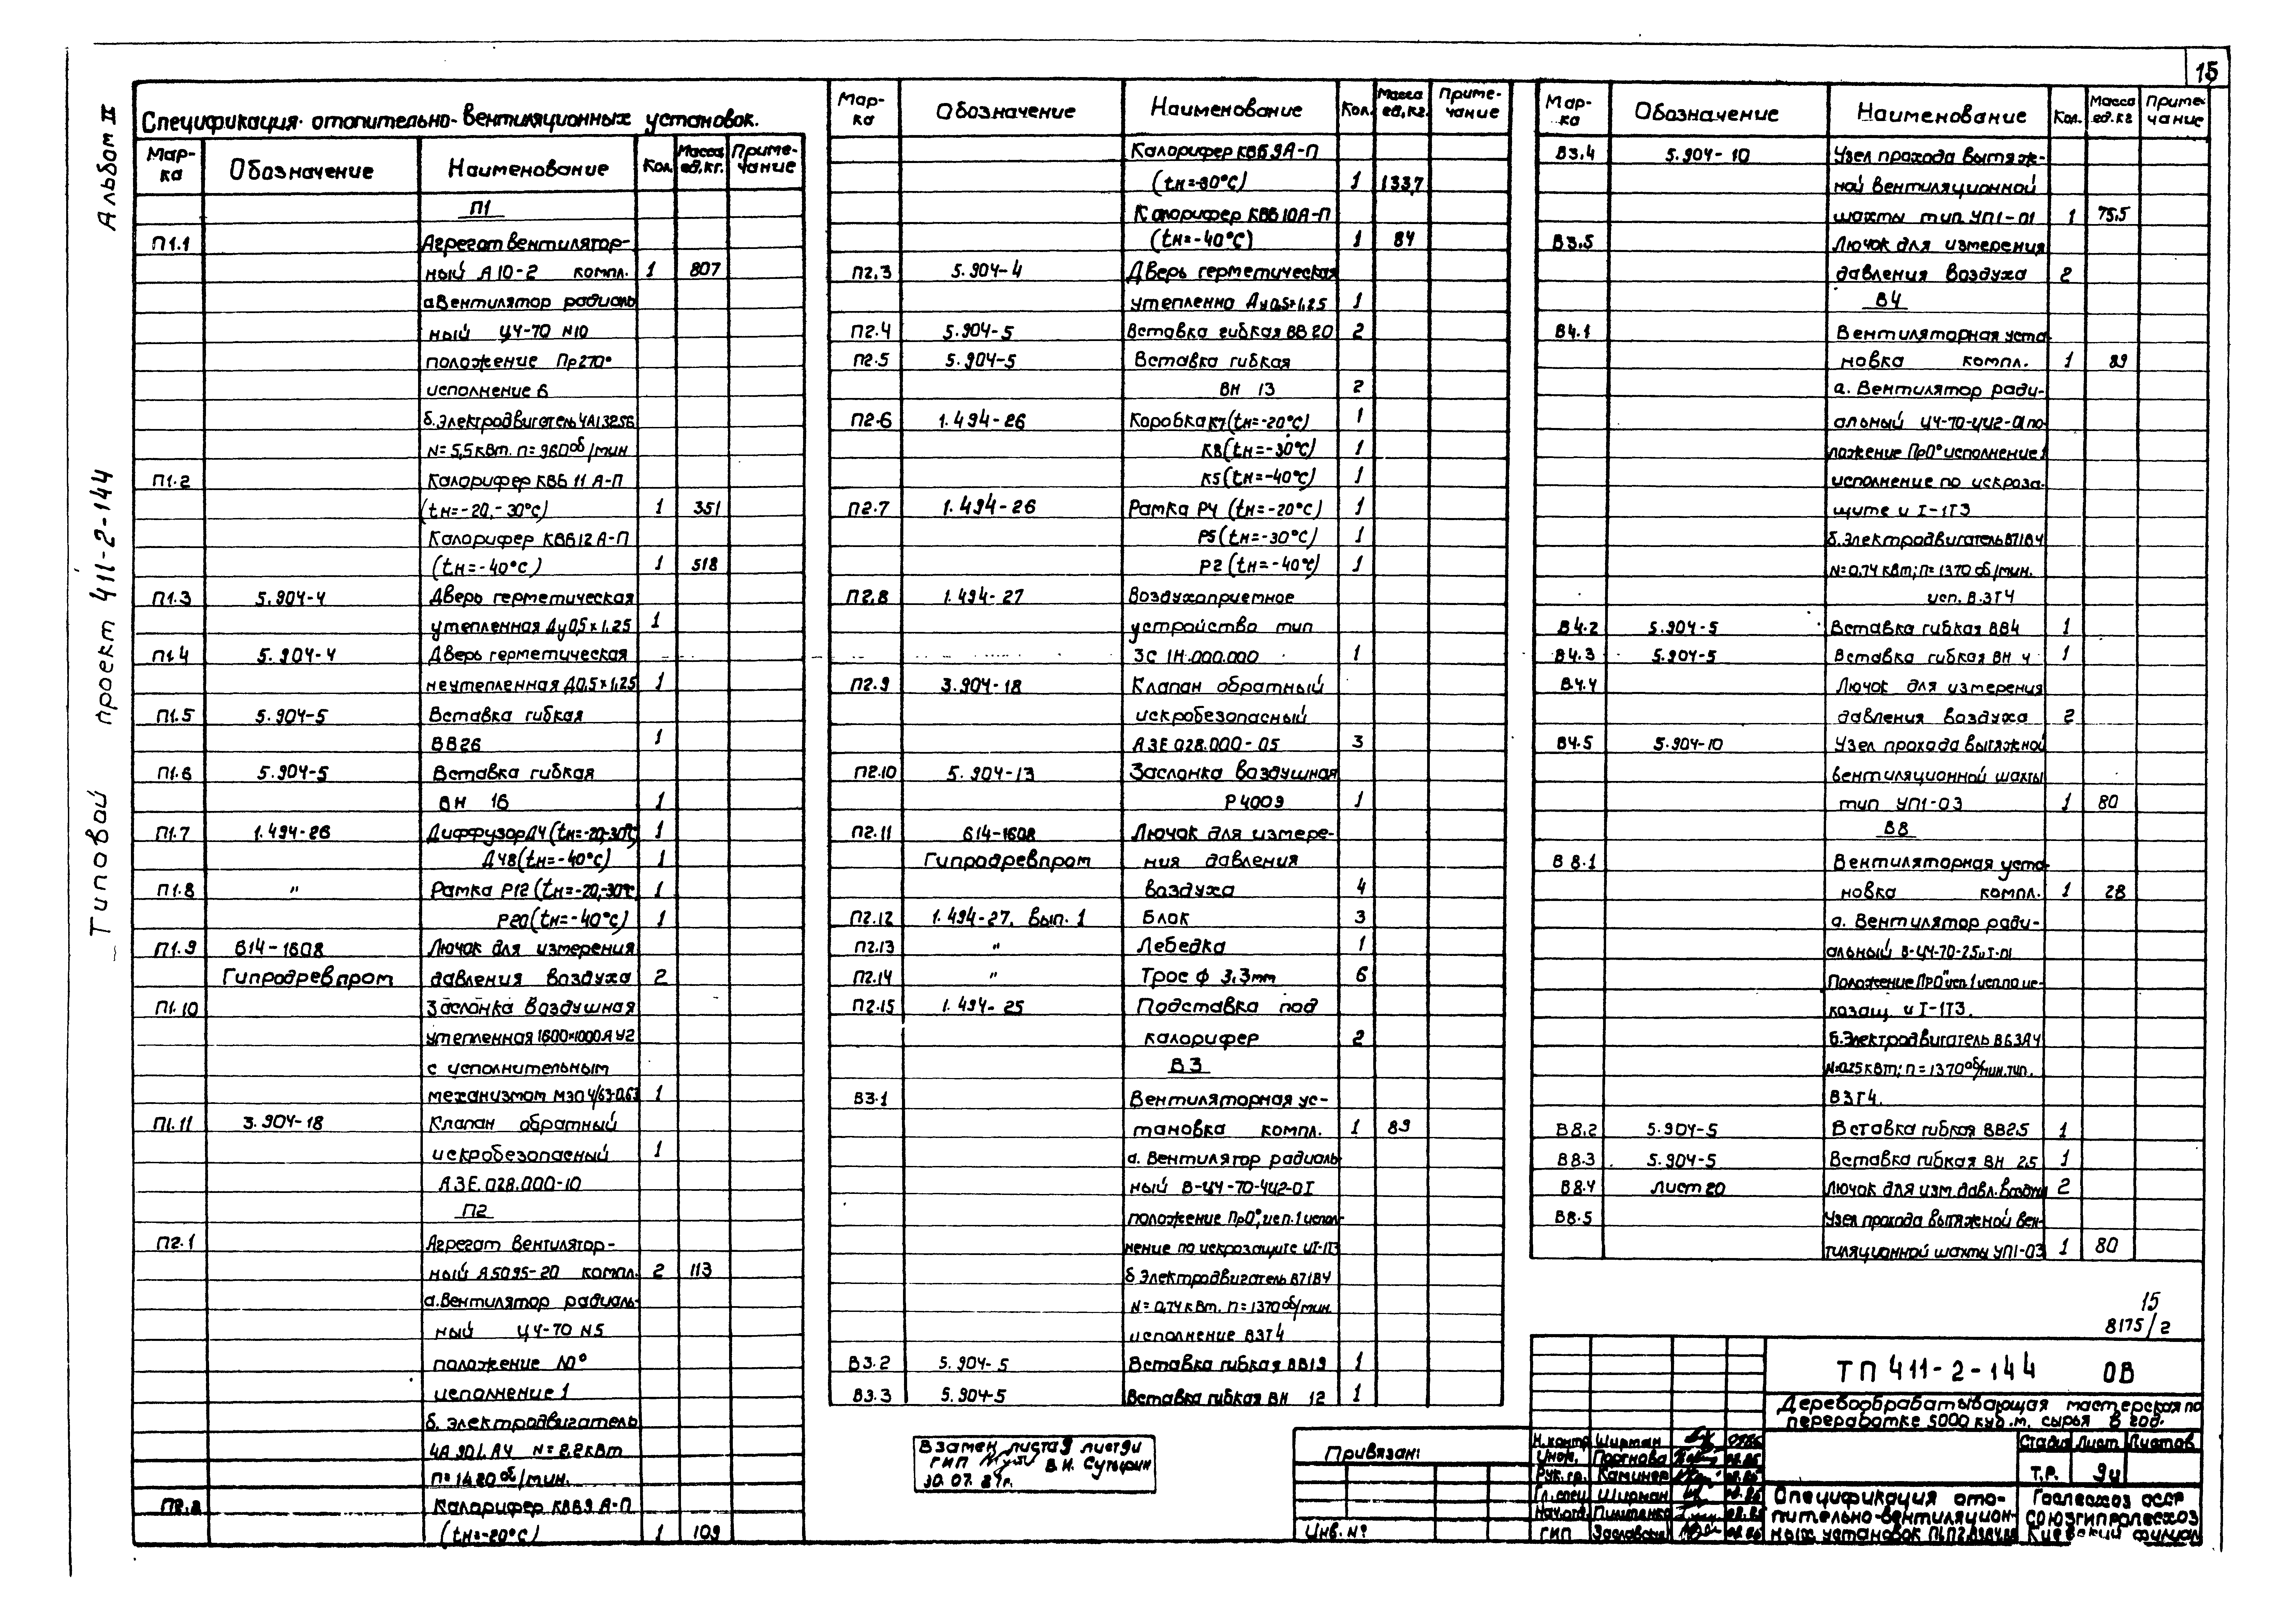 15
Альбом II
Типовой проект 411-2-144
Спецификация отопительно-вентиляционных установок.
Мар-ка Обозначение Наименование Кол. Масса ед, кг. Приме-чание
П1
П1.1 Агрегат вентилятор-
ный А10-2 компл. 1 807
а Вентилятор радиаль
ный Ц4-70 N10
положение Пр270°
исполнение 6
б. Электродвигатель 4А132S6
N=5,5 кВт. п=960 об/мин
П1.2 Калорифер КВБ 11 А-П
(tн=-20,-30°С) 1 351
Калорифер КВБ12А-П
(tн=-40°С) 1 518
П1.3 5.904-4 Дверь герметическая
утепленная Ду0,5×1,25 1
П1.4 5.904-4 Дверь герметическая
неутепленная Д0,5×1,25 1
П1.5 5.904-5 Вставка гибкая
ВВ26 1
П1.6 5.904-5 Вставка гибкая
ВН 16 1
П1.7 1.494-26 Диффузор Д4 (tн=-20,-30°С) 1
Д48 (tн=-40°С) 1
П1.8 " Рамка Р12 (tн=-20,-30°С 1
Р20 (tн=-40°С) 1
П1.9 614-1608 Лючок для измерения
Гипродревпром давления воздуха 2
П1.10 Заслонка воздушная
утепленная 1600×1000А У2
с исполнительным
механизмом МЭО 4/63-0.63 1
П1.11 3.904-18 Клапан обратный
искробезопасный 1
АЗЕ.028.000-10
П2
П2.1 Агрегат вентилятор-
ный А5095-20 компл. 2 113
а.Вентилятор радиаль-
ный Ц4-70 N5
положение Л0°
исполнение 1
б. электродвигатель
4А 90L А4 N=2.2кВт
п=1420 об/мин.
П2.2 Калорифер КВБ9 А-П
(tн=-20°С) 1 109
Мар-ка Обозначение Наименование Кол. Масса ед, кг. Приме-чание
Калорифер КВБ9А-П
(tн=-30°С) 1 133,7
Калорифер КВБ10А-П
(tн=-40°С) 1 84
П2.3 5.904-4 Дверь герметическая
утепленно Ду0,5×1,25 1
П2.4 5.904-5 Вставка гибкая ВВ 20 2
П2.5 5.904-5 Вставка гибкая
ВН 13 2
П2.6 1.494-26 Коробка К7 (tн=-20°С) 1
К8 (tн=-30°С) 1
К5 (tн=-40°С) 1
П2.7 1.494-26 Рамка Р4 (tн=-20°С) 1
Р5 (tн=-30°С) 1
Р2 (tн=-40°С) 1
П2.8 1.494-27 Воздухоприетное
устройство тип
3С 1Н.000.000 1
П2.9 3.904-18 Клапан обратный
искробезопасный
АЗЕ 028.000-05 3
П2.10 5.904-13 Заслонка воздушная
Р4009 1
П2.11 614-1608 Лючок для измере-
Гипродревпром ния давления
воздуха 4
П2.12 1.494-27. Вып. 1 Блок 3
П2.13 " Лебедка 1
П2.14 " Трос ф 3,3мм 6
П2.15 1.494-25 Подставка под
калорифер 2
В3
В3.1 Вентиляторная ус-
тановка компл. 1 89
а. Вентилятор радиаль
ный В-Ц4-70-4И2-01
положение ПрО°, исп.1 испол-
нение по искрозащите И1-1ТЗ
б Электродвигатель В71В4
N=0,74 кВт. п=1370 об/мин.
исполнение В3Т4
В3.2 5.904-5 Вставка гибкая ВВ19 1
В3.3 5.904-5 Вставка гибкая ВН 12 1
Мар-ка Обозначение Наименование Кол. Масса ед. кг Приме-чание
В3.4 5.904-10 Узел прохода вытяж-
ной вентиляционной
шахты тип УП1-01 1 75.5
В3.5 Лючок для измерения
давления воздуха 2
В4
В4.1 Вентиляторная уста
новка компл. 1 89
а. Вентилятор ради-
альный Ц4-70-4И2-01 по-
ложение ПрО° исполнение 1
исполнение по искроза-
щите И I-1ТЗ
б.Электродвигатель В71В4
N=0,74 кВт; п=1370 об/мин.
исп. В.3Т4
В4.2 5.904-5 Вставка гибкая ВВ4 1
В4.3 5.904-5 Вставка гибкая ВН 4 1
В4.4 Лючок для измерения
давления воздуха 2
В4.5 5.904-10 Узел прохода вытяжной
вентиляционной шахты
тип УП1-03 1 80
В8
В8.1 Вентиляторная уста-
новка компл. 1 28
а. Вентилятор ради-
альный В-Ц4-70-2,5И1-01
Положение ПрО° исп.1 исп по ис-
козащ. И I-1ТЗ.
б.Электродвигатель В63А4
N=0,25 кВт; п=1370 об/мин. тип.
В3Т4.
В8.2 5.904-5 Вставка гибкая ВВ2.5 1
В8.3 5.904-5 Вставка гибкая ВН 2.5 1
В8.4 Лист 20 Лючок для изм. давл. воздуха 2
В8.5 Узел прохода вытяжной вен-
тиляционной шахты УП1-03 1 80
15
8175/2
Взамен листа 9 лист 9и
ГИП В.И.
30.07.87г.
Привязан:
Инв. №
Н.контр Ширман
Рук.гр. Каминер
Гл.спец Ширман
Нач.отд.
ГИП
ТП 411-2-144 ОВ
Деревообрабатывающая мастерская по
переработке 5000 куб.м. сырья в год.
Стадия Лист Листов
Т.Р. 9и
Спецификация ото-
пительно-вентиляцион-
ных установок П1,П2,В3,В4,В8
Гослесхоз СССР
Союзгипролесхоз
Киевский филиал